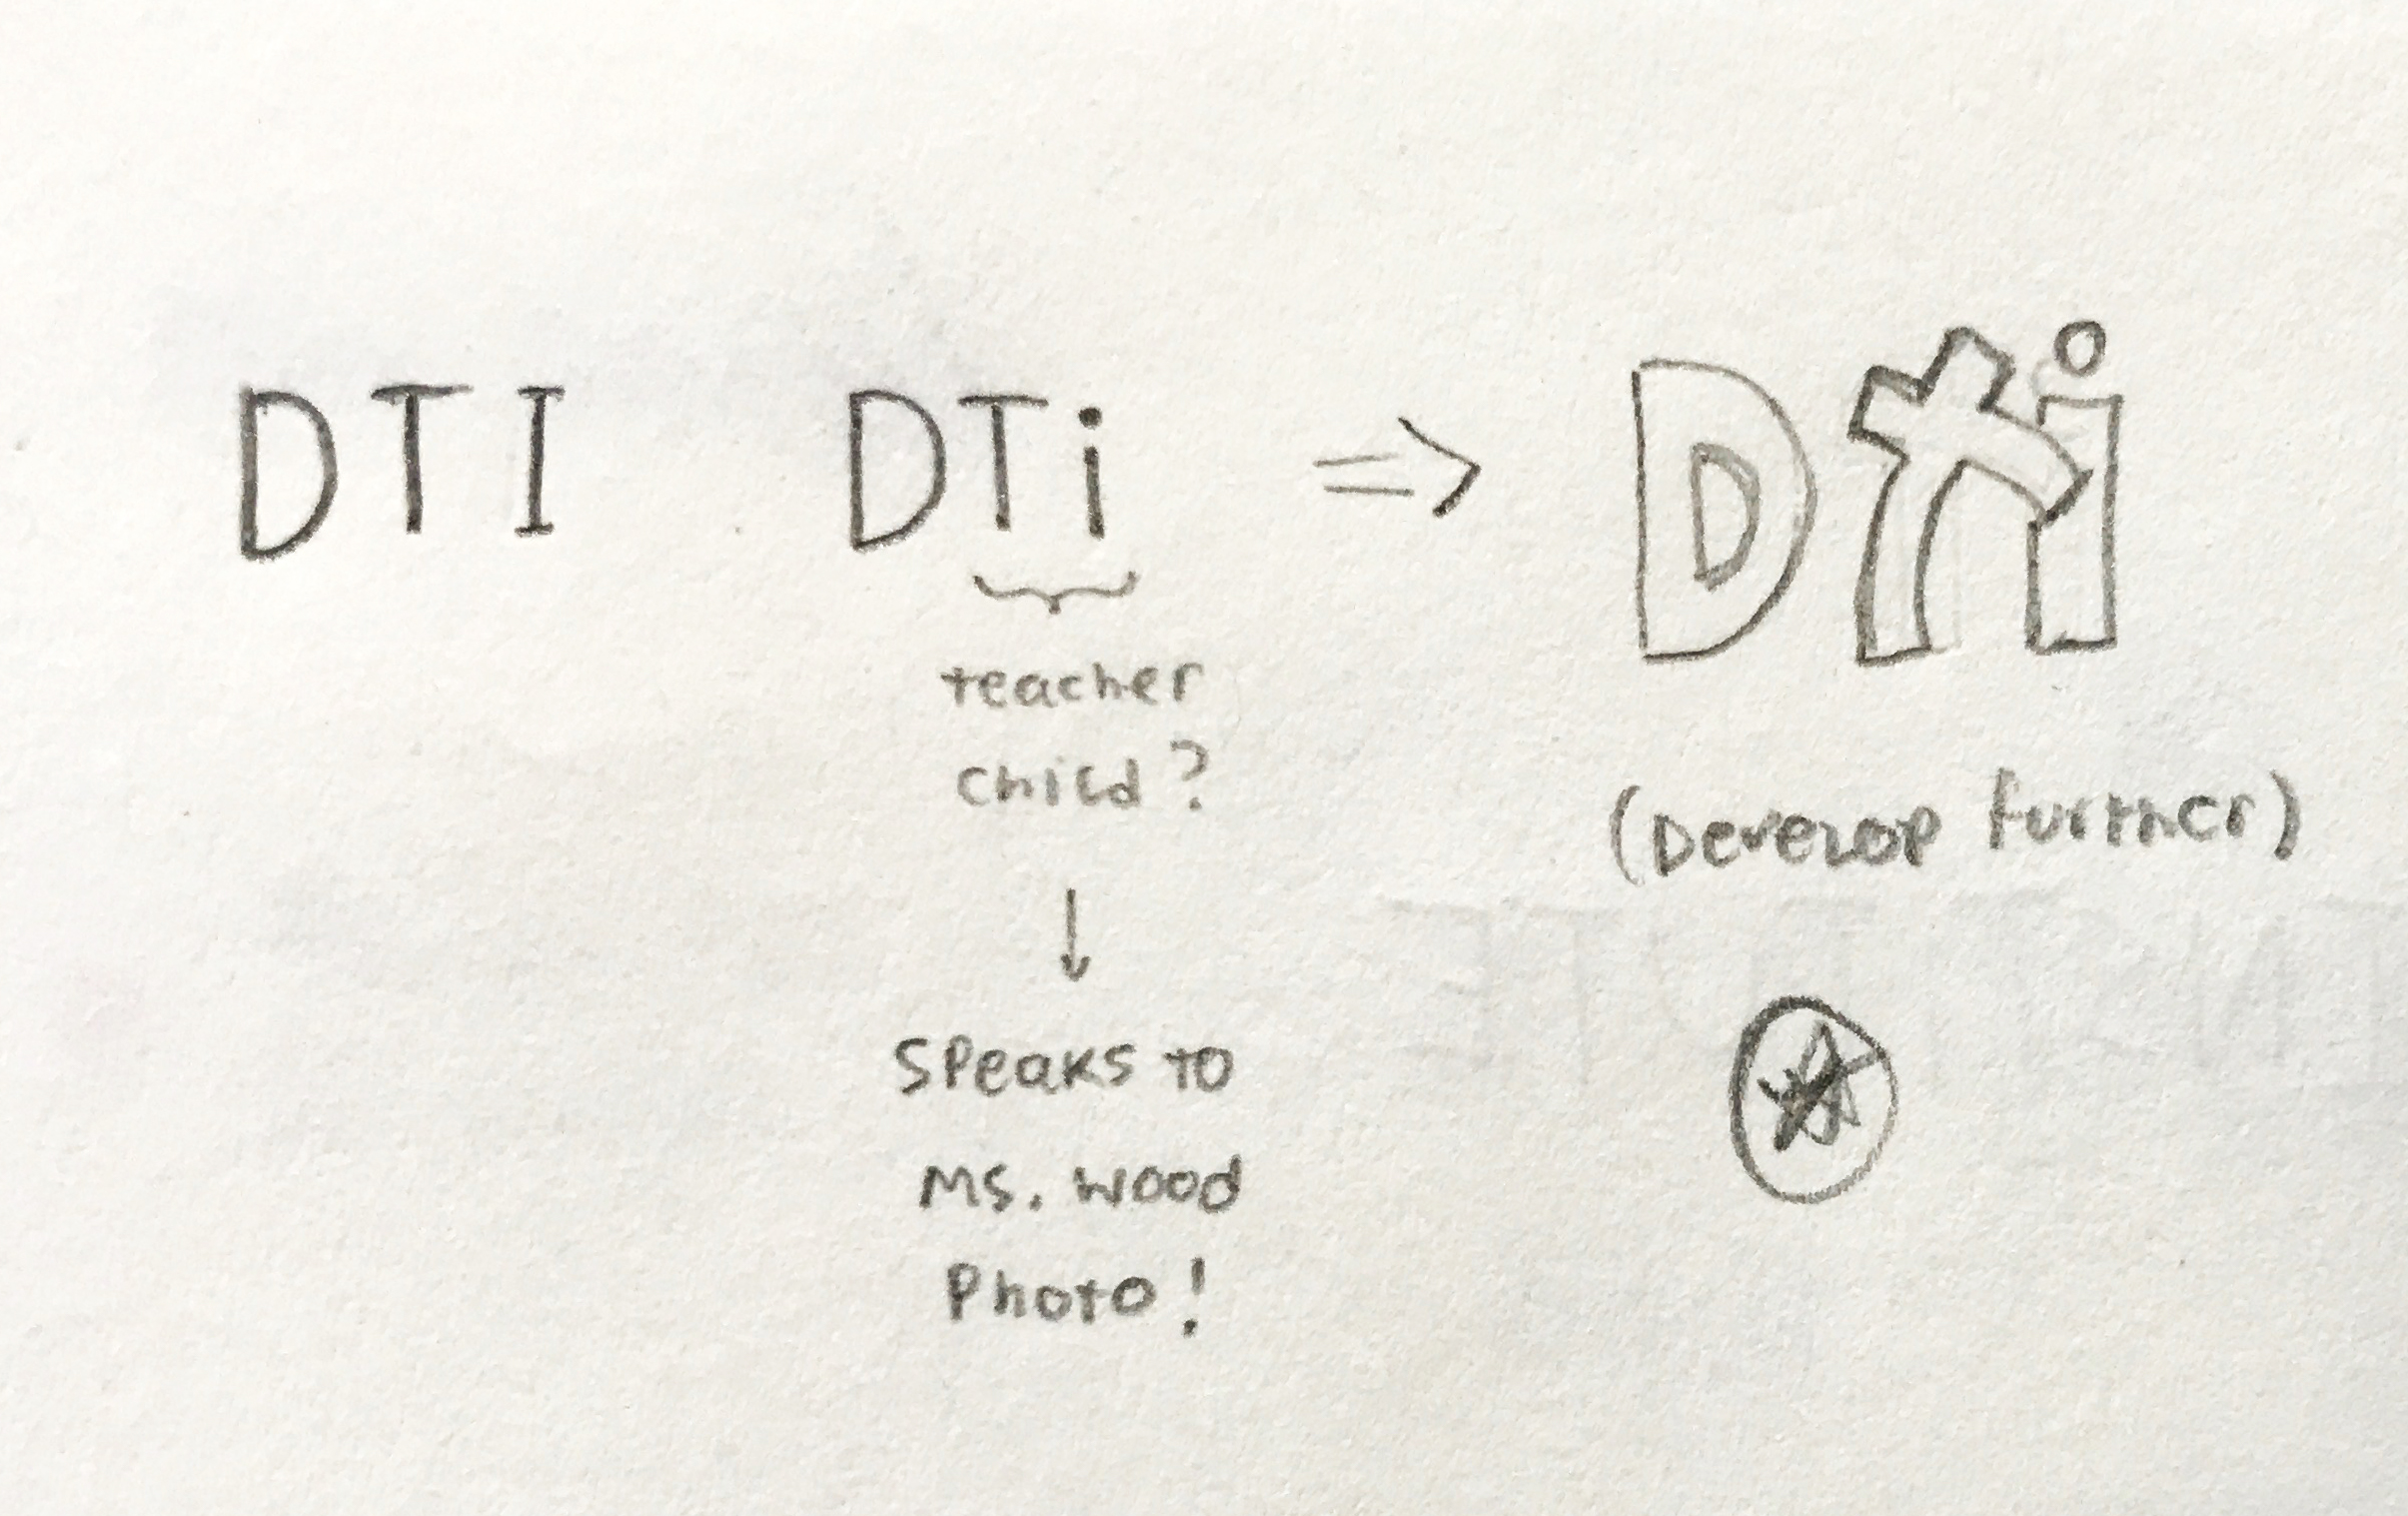 DTI DTi ⇒ Dti
teacher
child?
↓
Speaks to
Ms. Wood
Photo!
(Develop further)